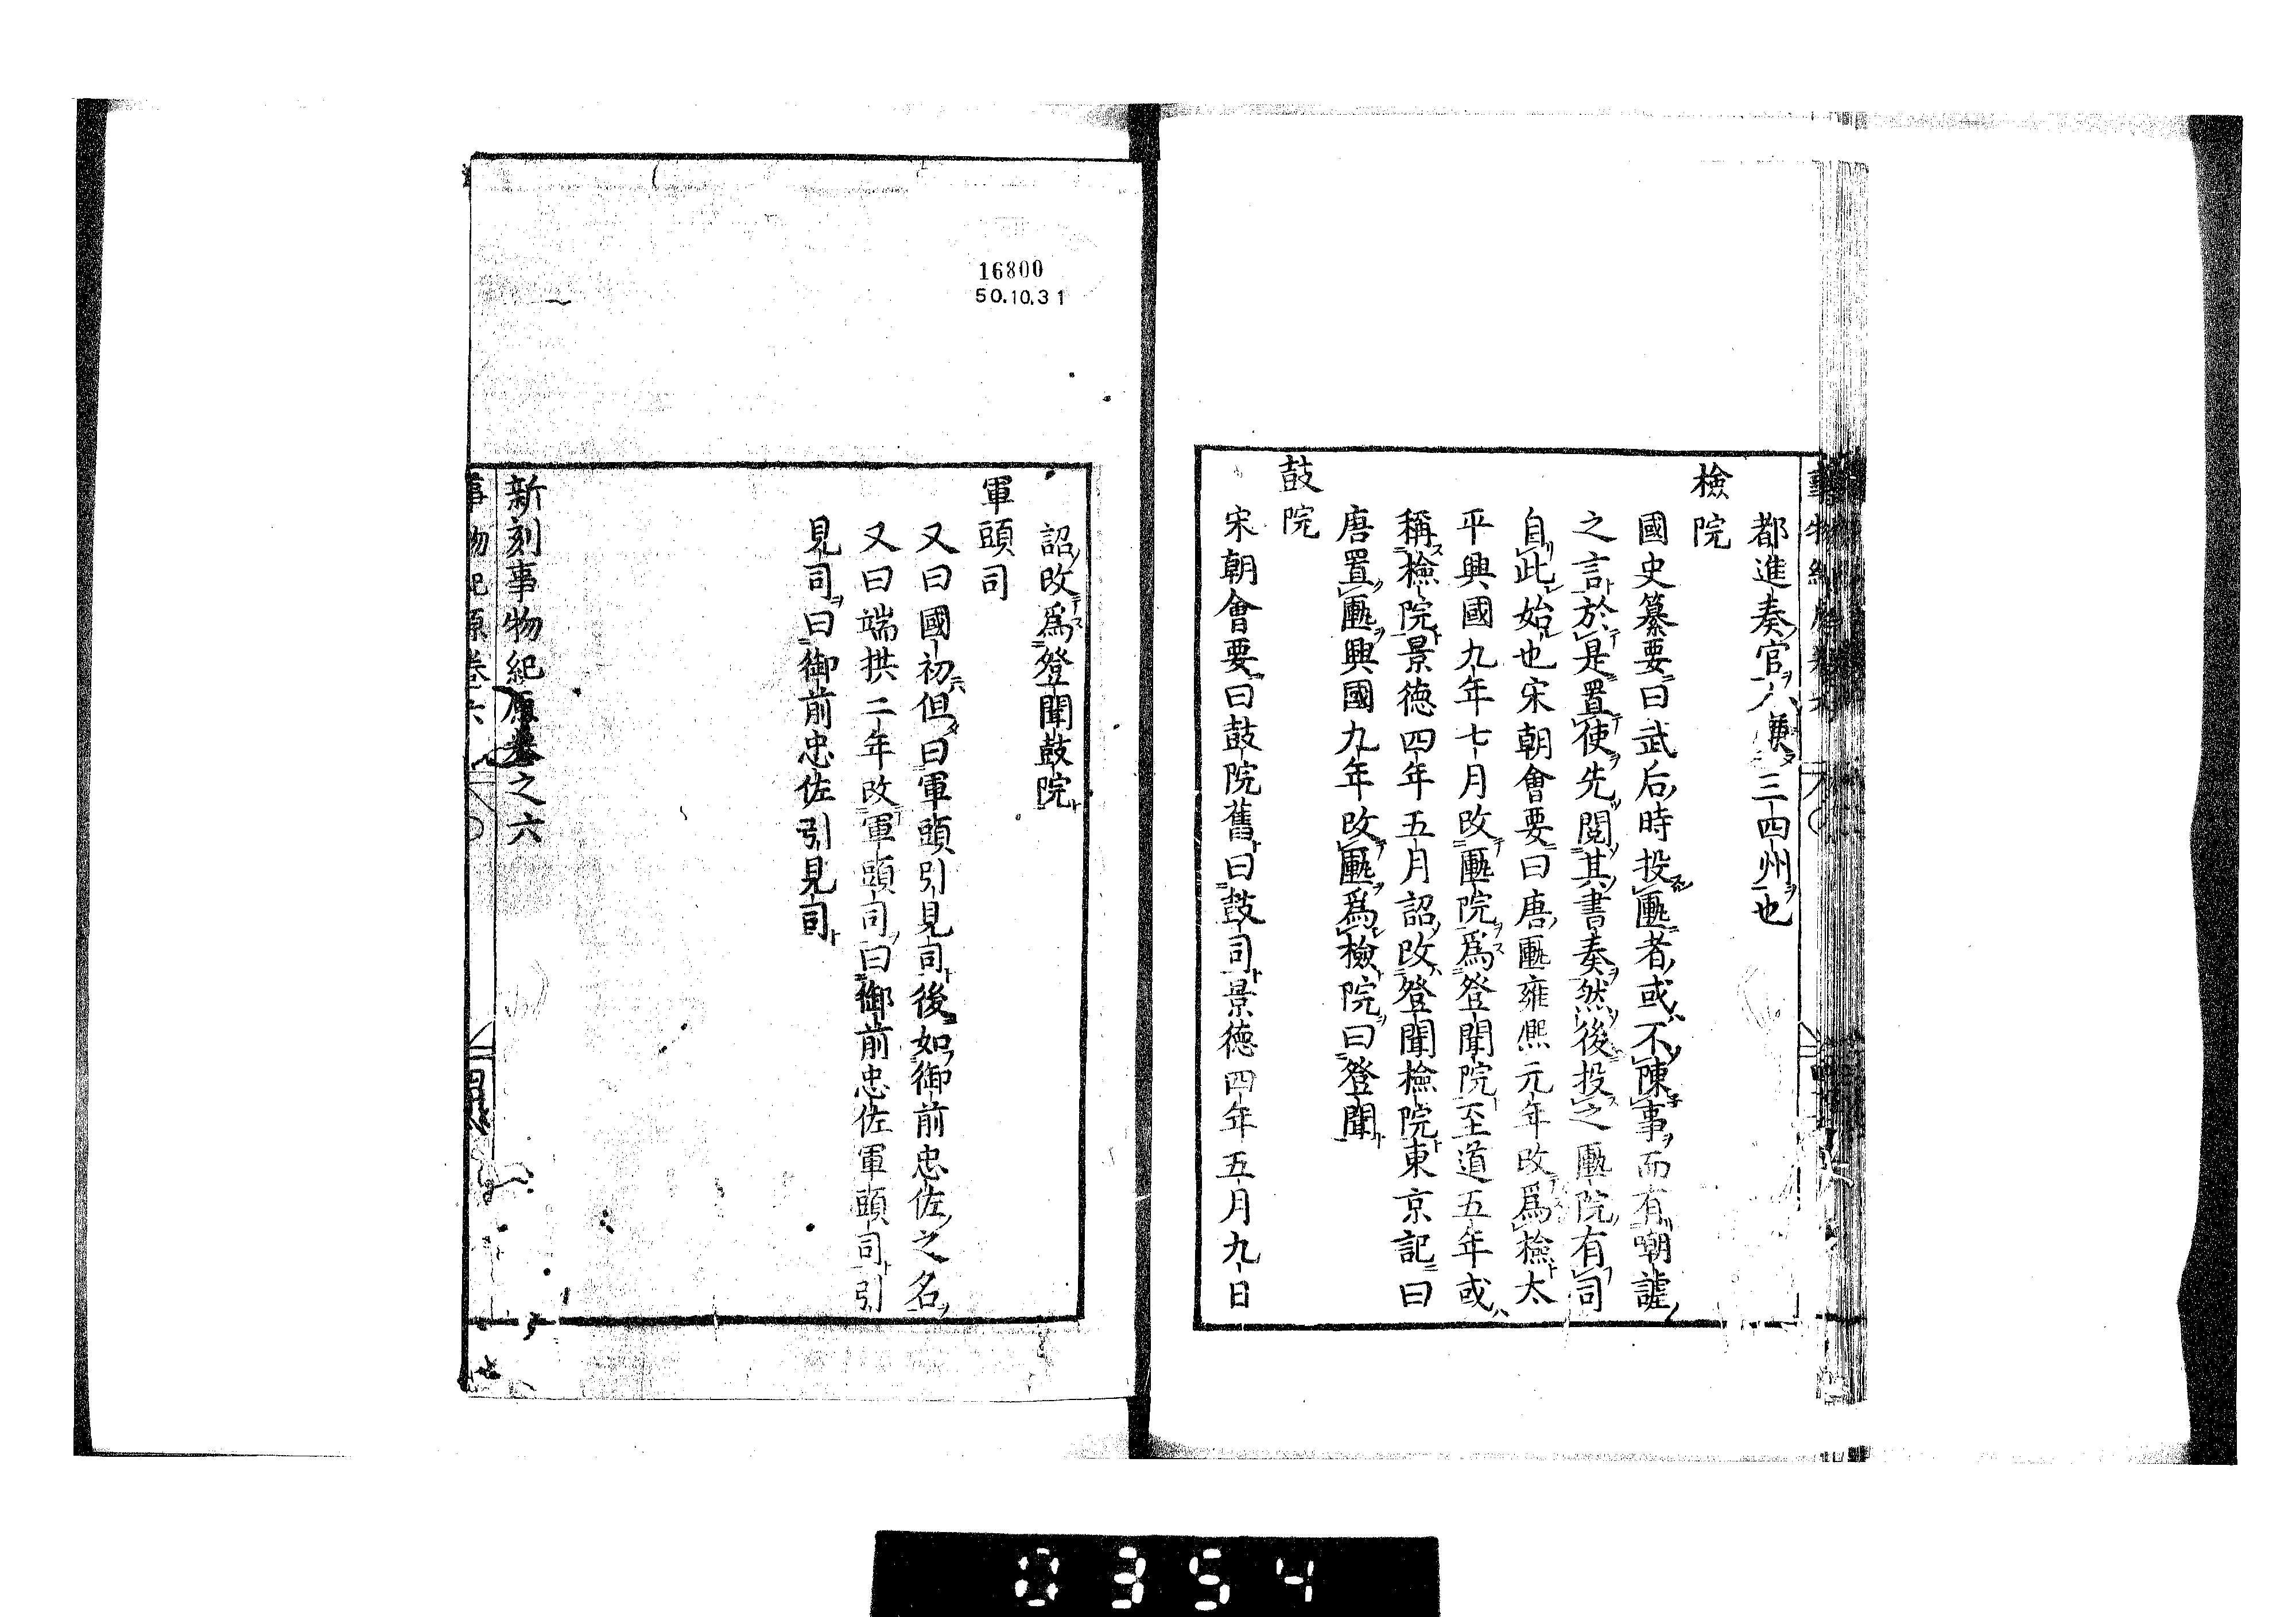 都進奏官人兼三四州也
檢院
國史纂要曰武后時投匭者或不陳事而有嘲謔
之言於是置使先閱其書奏然後投之匭院有司
自此始也宋朝會要曰唐匭雍熙元年改爲檢太
平興國九年七月改匭院爲登聞院至道五年或
稱檢院景德四年五月詔改登聞檢院東京記曰
唐置匭興國九年改匭爲檢院曰登聞
鼓院
宋朝會要曰鼓院舊曰鼓司景德四年五月九日
詔改爲登聞鼓院
軍頭司
又曰國初但曰軍頭引見司後如御前忠佐之名
又曰端拱二年改軍頭司曰御前忠佐軍頭司引
見司曰御前忠佐引見司
新刻事物紀原卷之六
事物紀原卷六
16800
50.10.31
0354